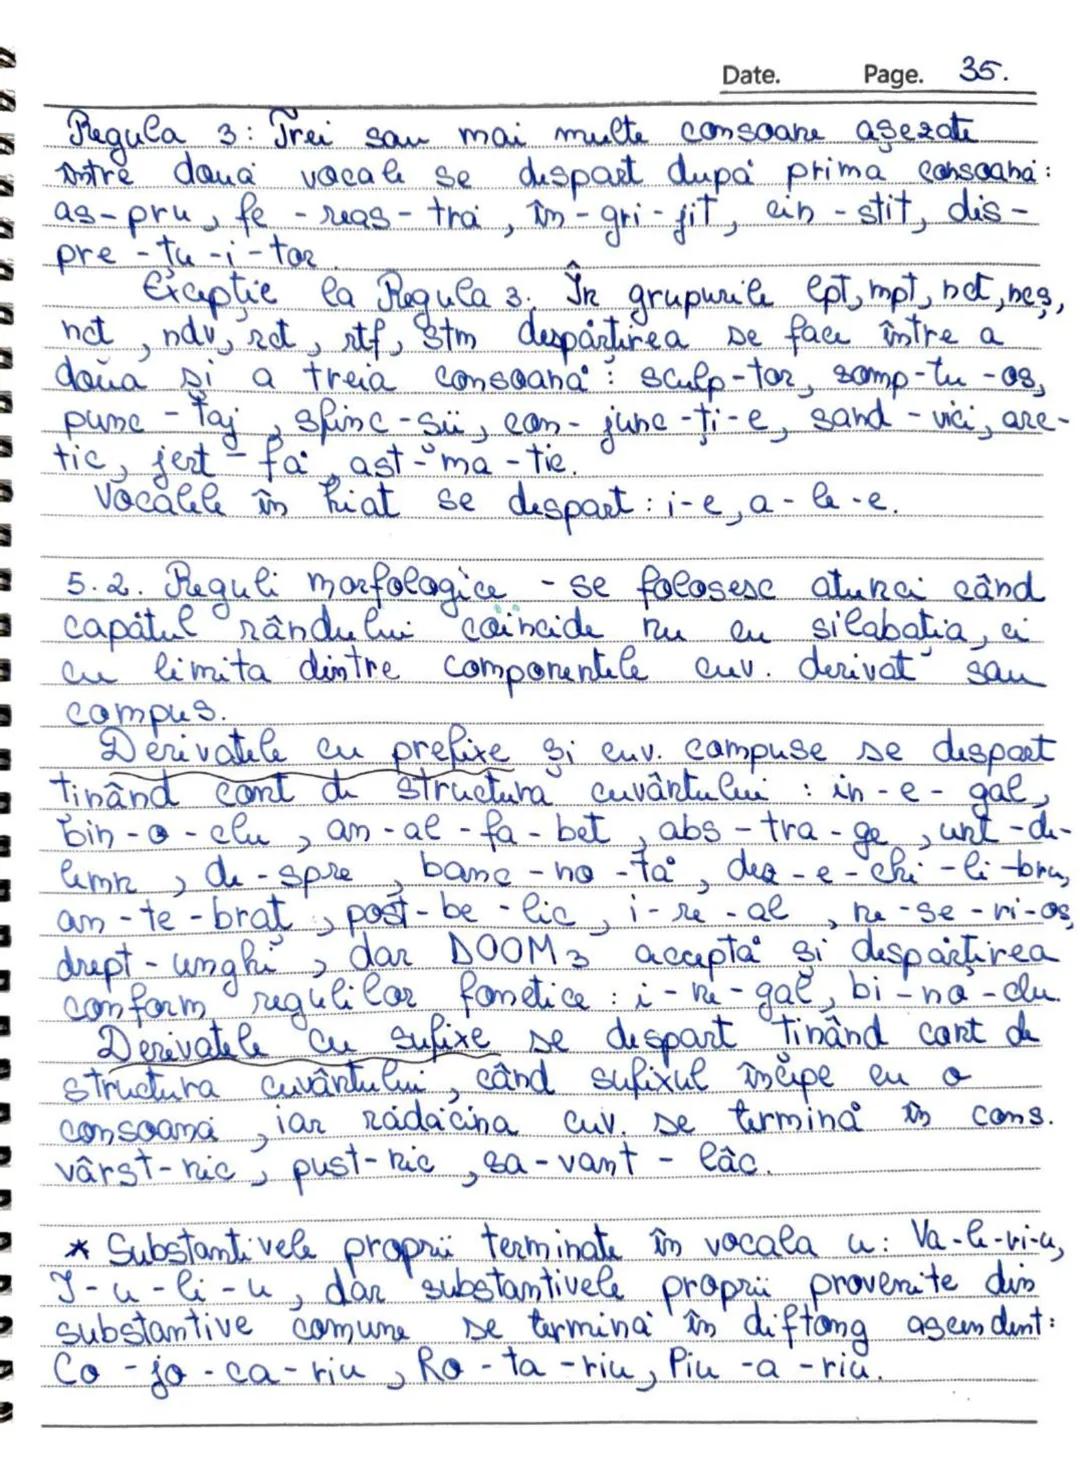 Date. Page. 35.
Regula 3: Trei sau mai multe consoane așezate
între două vocale se despart după prima consoană:
as-pru, fe-reas-tră, în-gri-jit, cin-stit, dis-
pre-țu-i-tor.
Excepție la Regula 3. În grupurile lpt, mpt, nct, ncș,
nct, ndv, rct, rtf, stm despărțirea se face între a
doua și a treia consoană: sculp-tor, somp-tu-os,
punc-taj, sfinc-șii, con-junc-ți-e, sand-vici, arc-
tic, jert-fă, ast-ma-tic.
Vocalele în hiat se despart: i-e, a-le-e.
5.2. Reguli morfologice - se folosesc atunci când
capătul rândului coincide nu cu silabația, ci
cu limita dintre componentele cuv. derivat sau
compus.
Derivatele cu prefixe și cuv. compuse se despart
ținând cont de structura cuvântului: in-e-gal,
bin-o-clu, an-al-fa-bet, abs-tra-ge, unt-de-
lemn, de-spre, banc-no-tă, dez-e-chi-li-bru,
an-te-brat, post-be-lic, i-re-al, ne-se-ri-os,
drept-unghi, dar DOOM3 acceptă și despărțirea
conform regulilor fonetice: i-ne-gal, bi-no-clu.
Derivatele cu sufixe se despart ținând cont de
structura cuvântului, când sufixul începe cu o
consoană, iar rădăcina cuv. se termină în cons.
vârst-nic, pust-nic, sa-vant-lâc.
* Substantivele proprii terminate în vocala u: Va-le-ri-u,
I-u-li-u, dar substantivele proprii provenite din
substantive comune se termină în diftong ascendent:
Co-jo-ca-riu, Ro-ta-riu, Piu-a-riu.